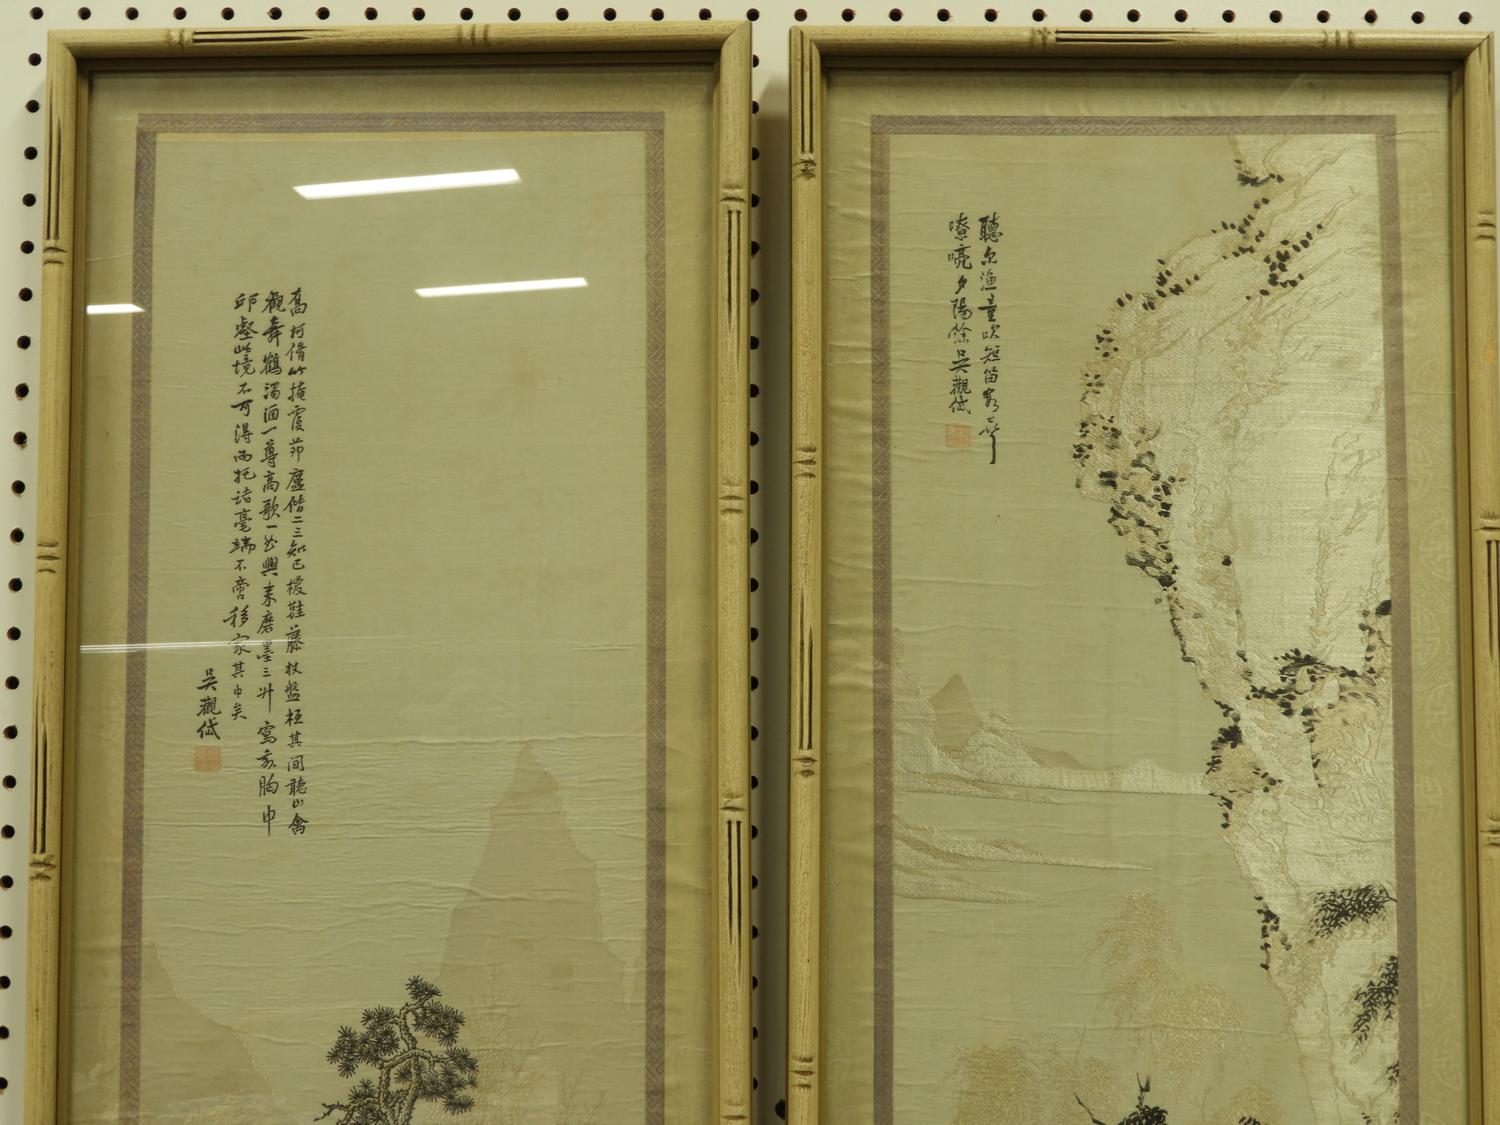 高柯脩竹掩霞茆廬偕二三知己櫈鞋藤杖盤桓其間聽山禽
觀舞鶴濁酒一尊高歌一曲興来磨墨三升寫我胸中
邱壑此境不可得而托诸毫端不啻移家其中矣
吴觀岱
聽尔漁童吹短笛數聲
嘹喨夕陽餘吴觀岱